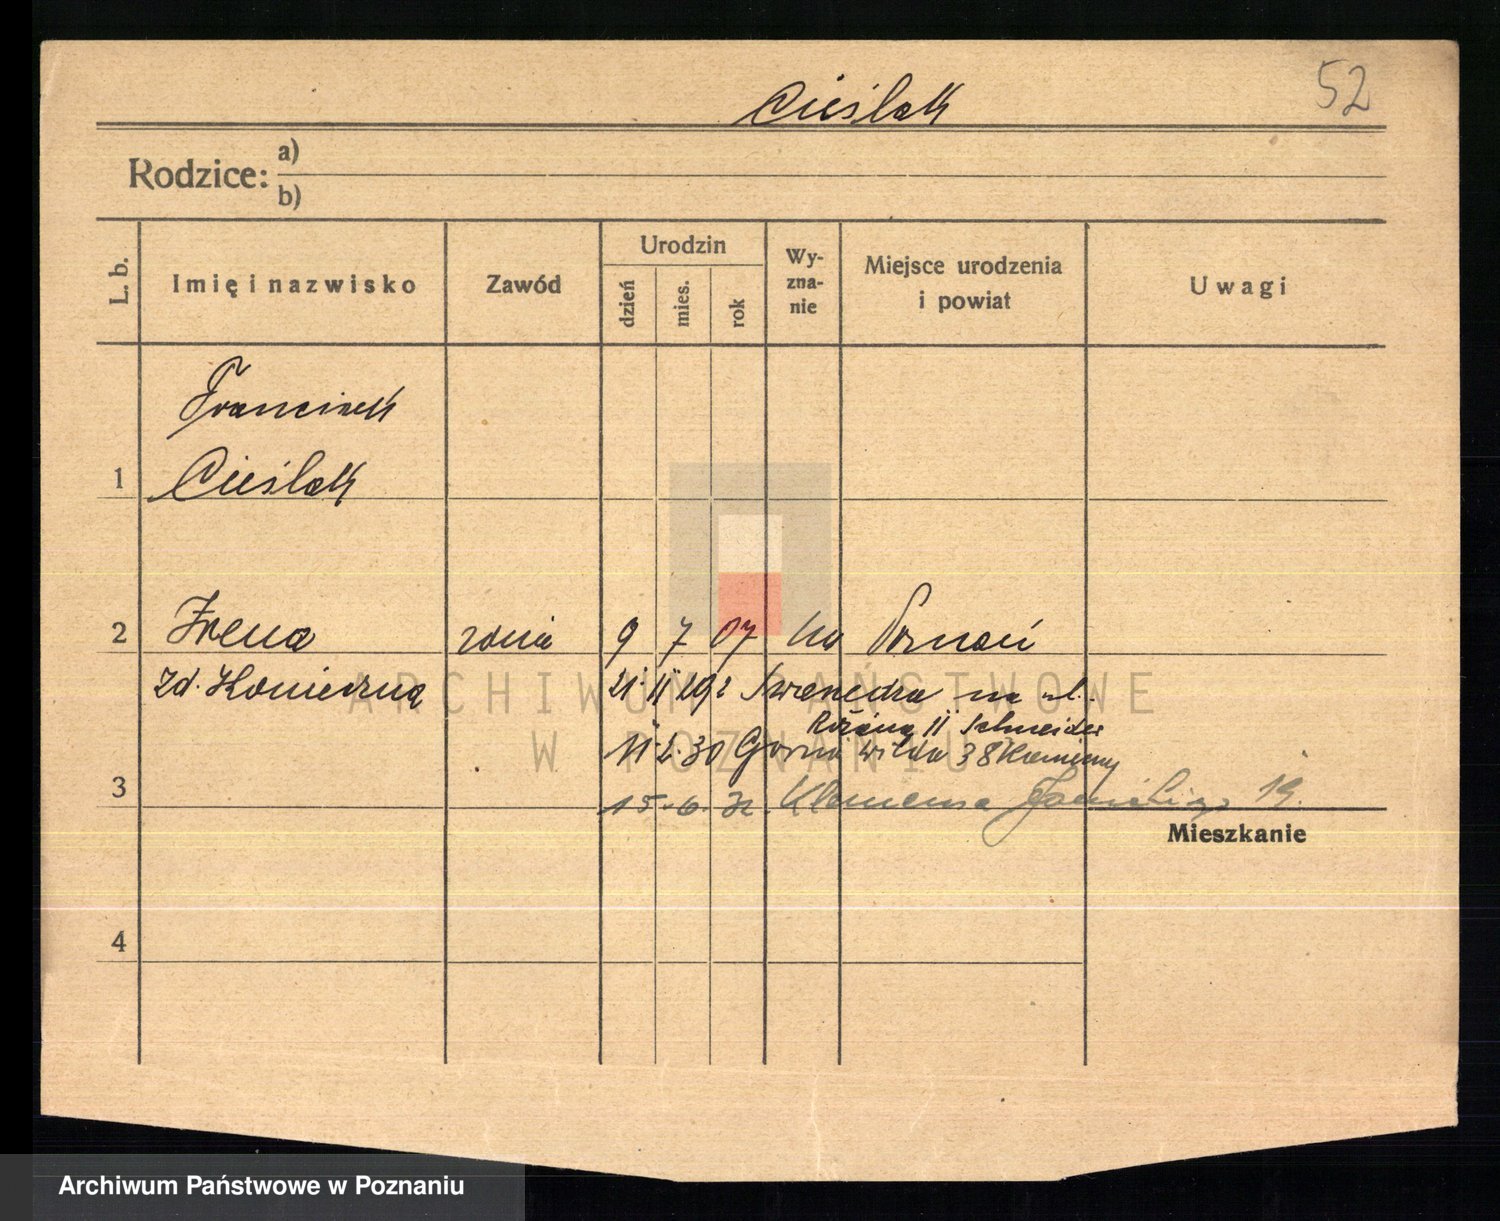 52
Cieślak
Rodzice: a)
b)
L. b.
Imię i nazwisko
Zawód
Urodzin
dzień
mies.
rok
Wy-
zna-
nie
Miejsce urodzenia
i powiat
Uwagi
Franciszek
1 Cieślak
2 Irena żona 9 7 07 Poznań
zd. Konieczną 21. 11 292
Różana 11 Schneider
11 2. 30 Górna Wilda 38
3 15. 6. 32. Klemensa 19.
Mieszkanie
4
ARCHIWUM PAŃSTWOWE
W POZNANIU
Archiwum Państwowe w Poznaniu